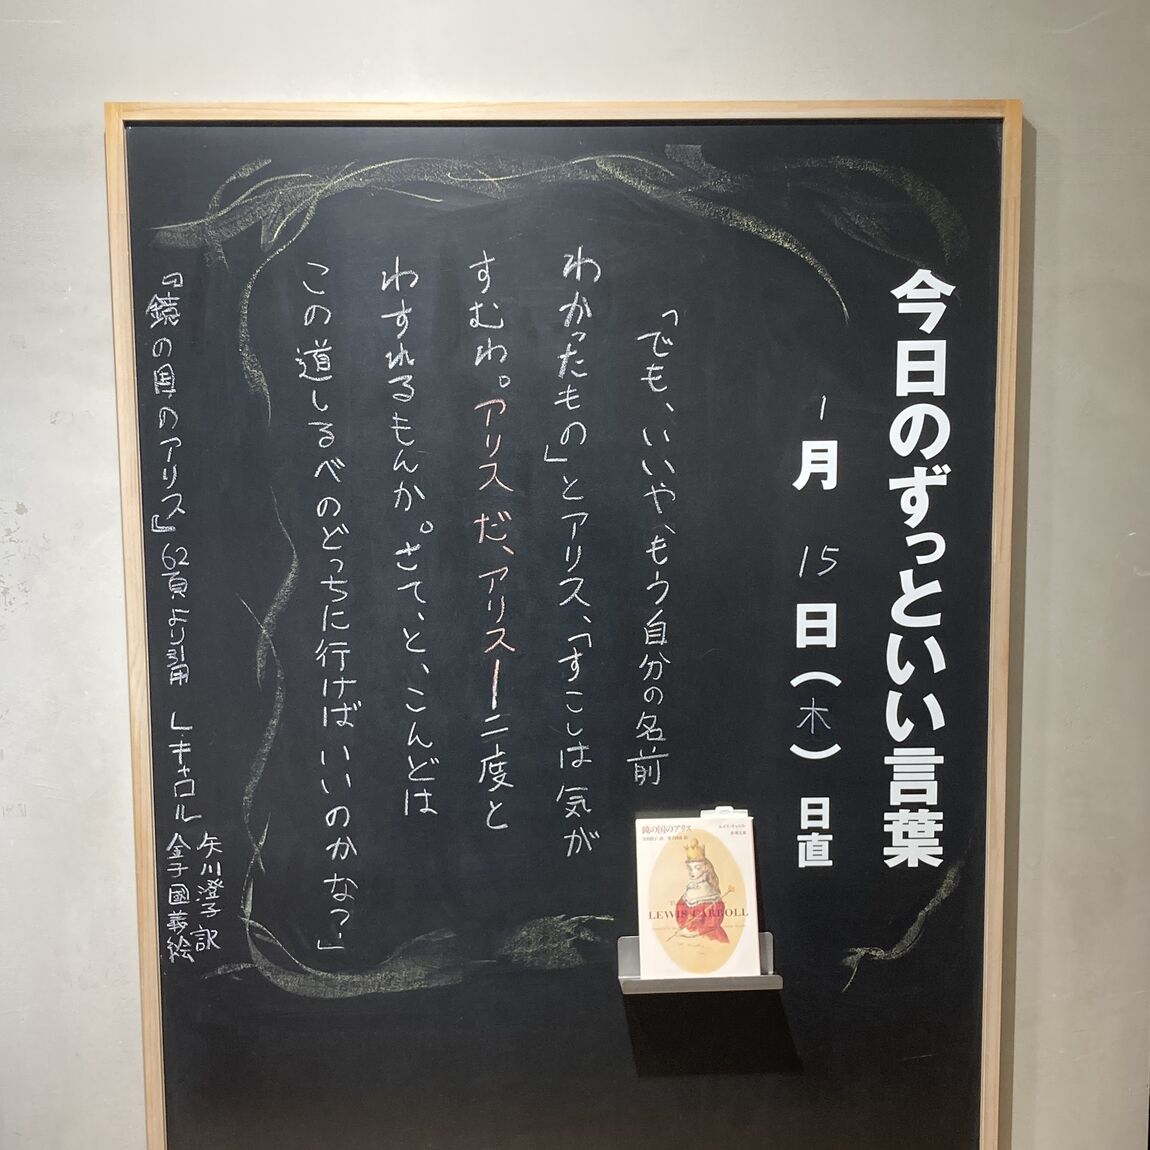 今日のずっといい言葉
1月15日(木) 日直
「でも、いいや、もう自分の名前
わかったもの」とアリス、「すこしは気が
すむわ。アリスだ、アリス——二度と
わすれるもんか。さて、と、こんどは
この道しるべのどっちに行けばいいのかな？」
『鏡の国のアリス』62頁より引用 L・キャロル
矢川澄子 訳
金子國義 絵
鏡の国のアリス
ルイス・キャロル
LEWIS CARROLL